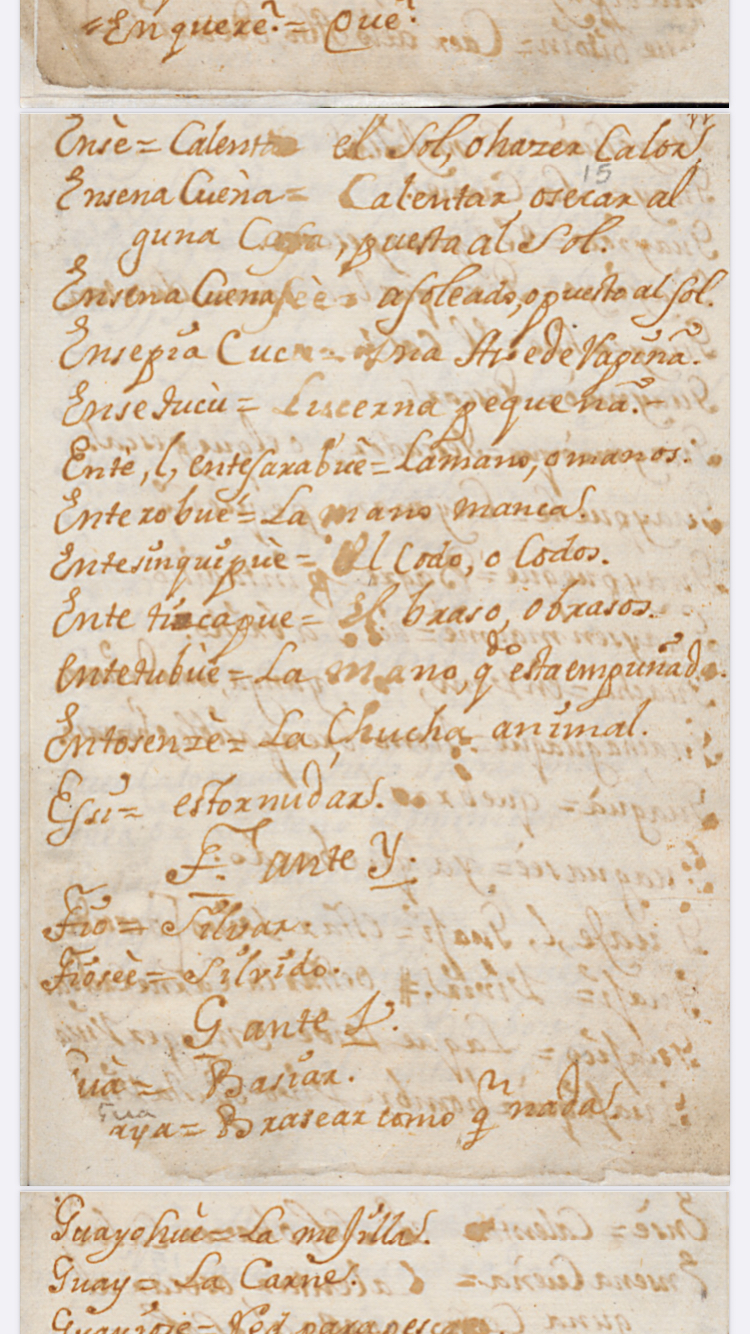 Enquerè. = Que.
Ensè = Calentar el Sol, o hazer Calor.
15
Ensena Cuèna = Calentar, o secar al
guna Cossa, puesta al Sol.
Ensena Cuenassèè = asoleado, o puesto al sol.
Ensepia Cuc = Una Ave de Rapiña.
Ense ducù = Lucerna pequeña. -
Entè, l, entesarabuè = La mano, o manos.
Enterobuè = La mano manca.
Entesinquipuè = El Codo, o Codos.
Ente tucapue = El braso, o brasos.
Entetubuè = La Mano, q̃ está empuñada.
Entosenzè = La Chucha, animal.
Essi = estornudar.
F. ante Y.
Fiò = Silvar.
Fiosèè = Silvido.
G ante V.
Guà = Basiar.
Gua
aya = Brasear como qn nada.
Guayohuè = La mejilla.
Guay = La Carne.
= Red para pescar.